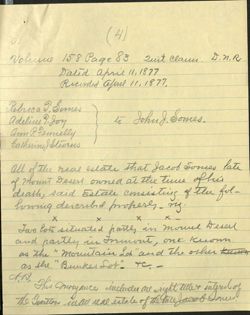 (4)
Volume 158 Page 83 Quit claim. D.N.R
Dated April 11, 1877
Received April 11, 1877.
Rebecca S. Somes
Adeline R. Joy
Ann P. Fennelly
Cathrine J. Stevens
to John J. Somes.
All of the real estate that Jacob Somes late
of Mount Desert owned at the time of his
death, said estate consisting of the fol-
lowing described property - viz
x x x x -
Two lots situated partly in Mount Desert
and partly in Tremont, one known
as the "Mountain Lot" and the other
as the "Bunker Lot". &c, -
This conveyance includes all right title & interest of
the Grantors in all real estate of the late Jacob Somes.